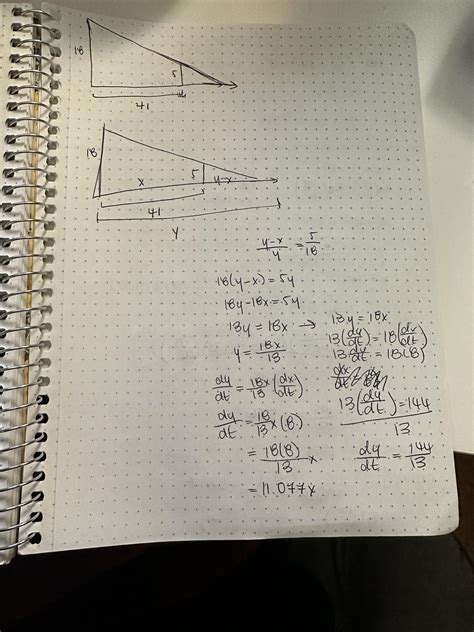 18
5
41
18
x
5
y-x
41
y
y-x/y = 5/18
18(y-x) = 5y
18y-18x = 5y
13y = 18x →
y = 18x/13
dy/dt = 18x/13 (dx/dt)
dy/dt = 18/13 x (8)
= 18(8)/13 x
= 11.077x
13y = 18x
13(dy/dt) = 18(dx/dt)
13 dy/dt = 18(8)
13(dy/dt) = 144
13
dy/dt = 144/13